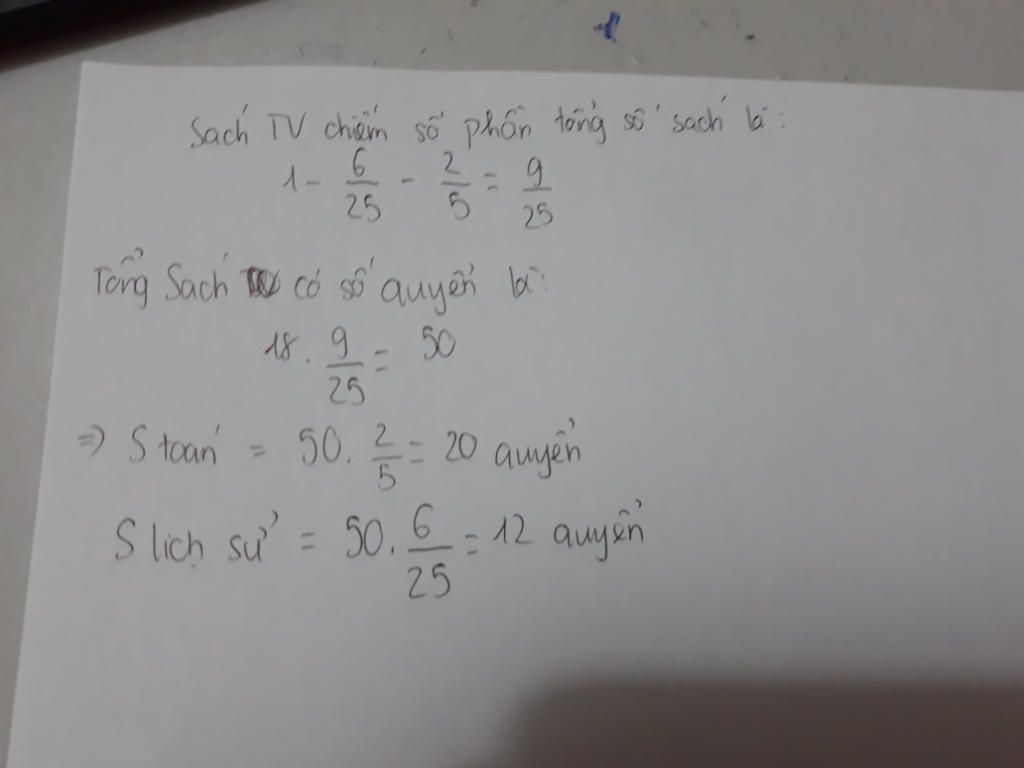 Sách TV chiếm số phần tổng số sách là:
1 - 6/25 - 2/5 = 9/25
Tổng Sách có số quyển là:
18 . 9/25 = 50
=> S toán = 50 . 2/5 = 20 quyển
S lịch sử = 50 . 6/25 = 12 quyển